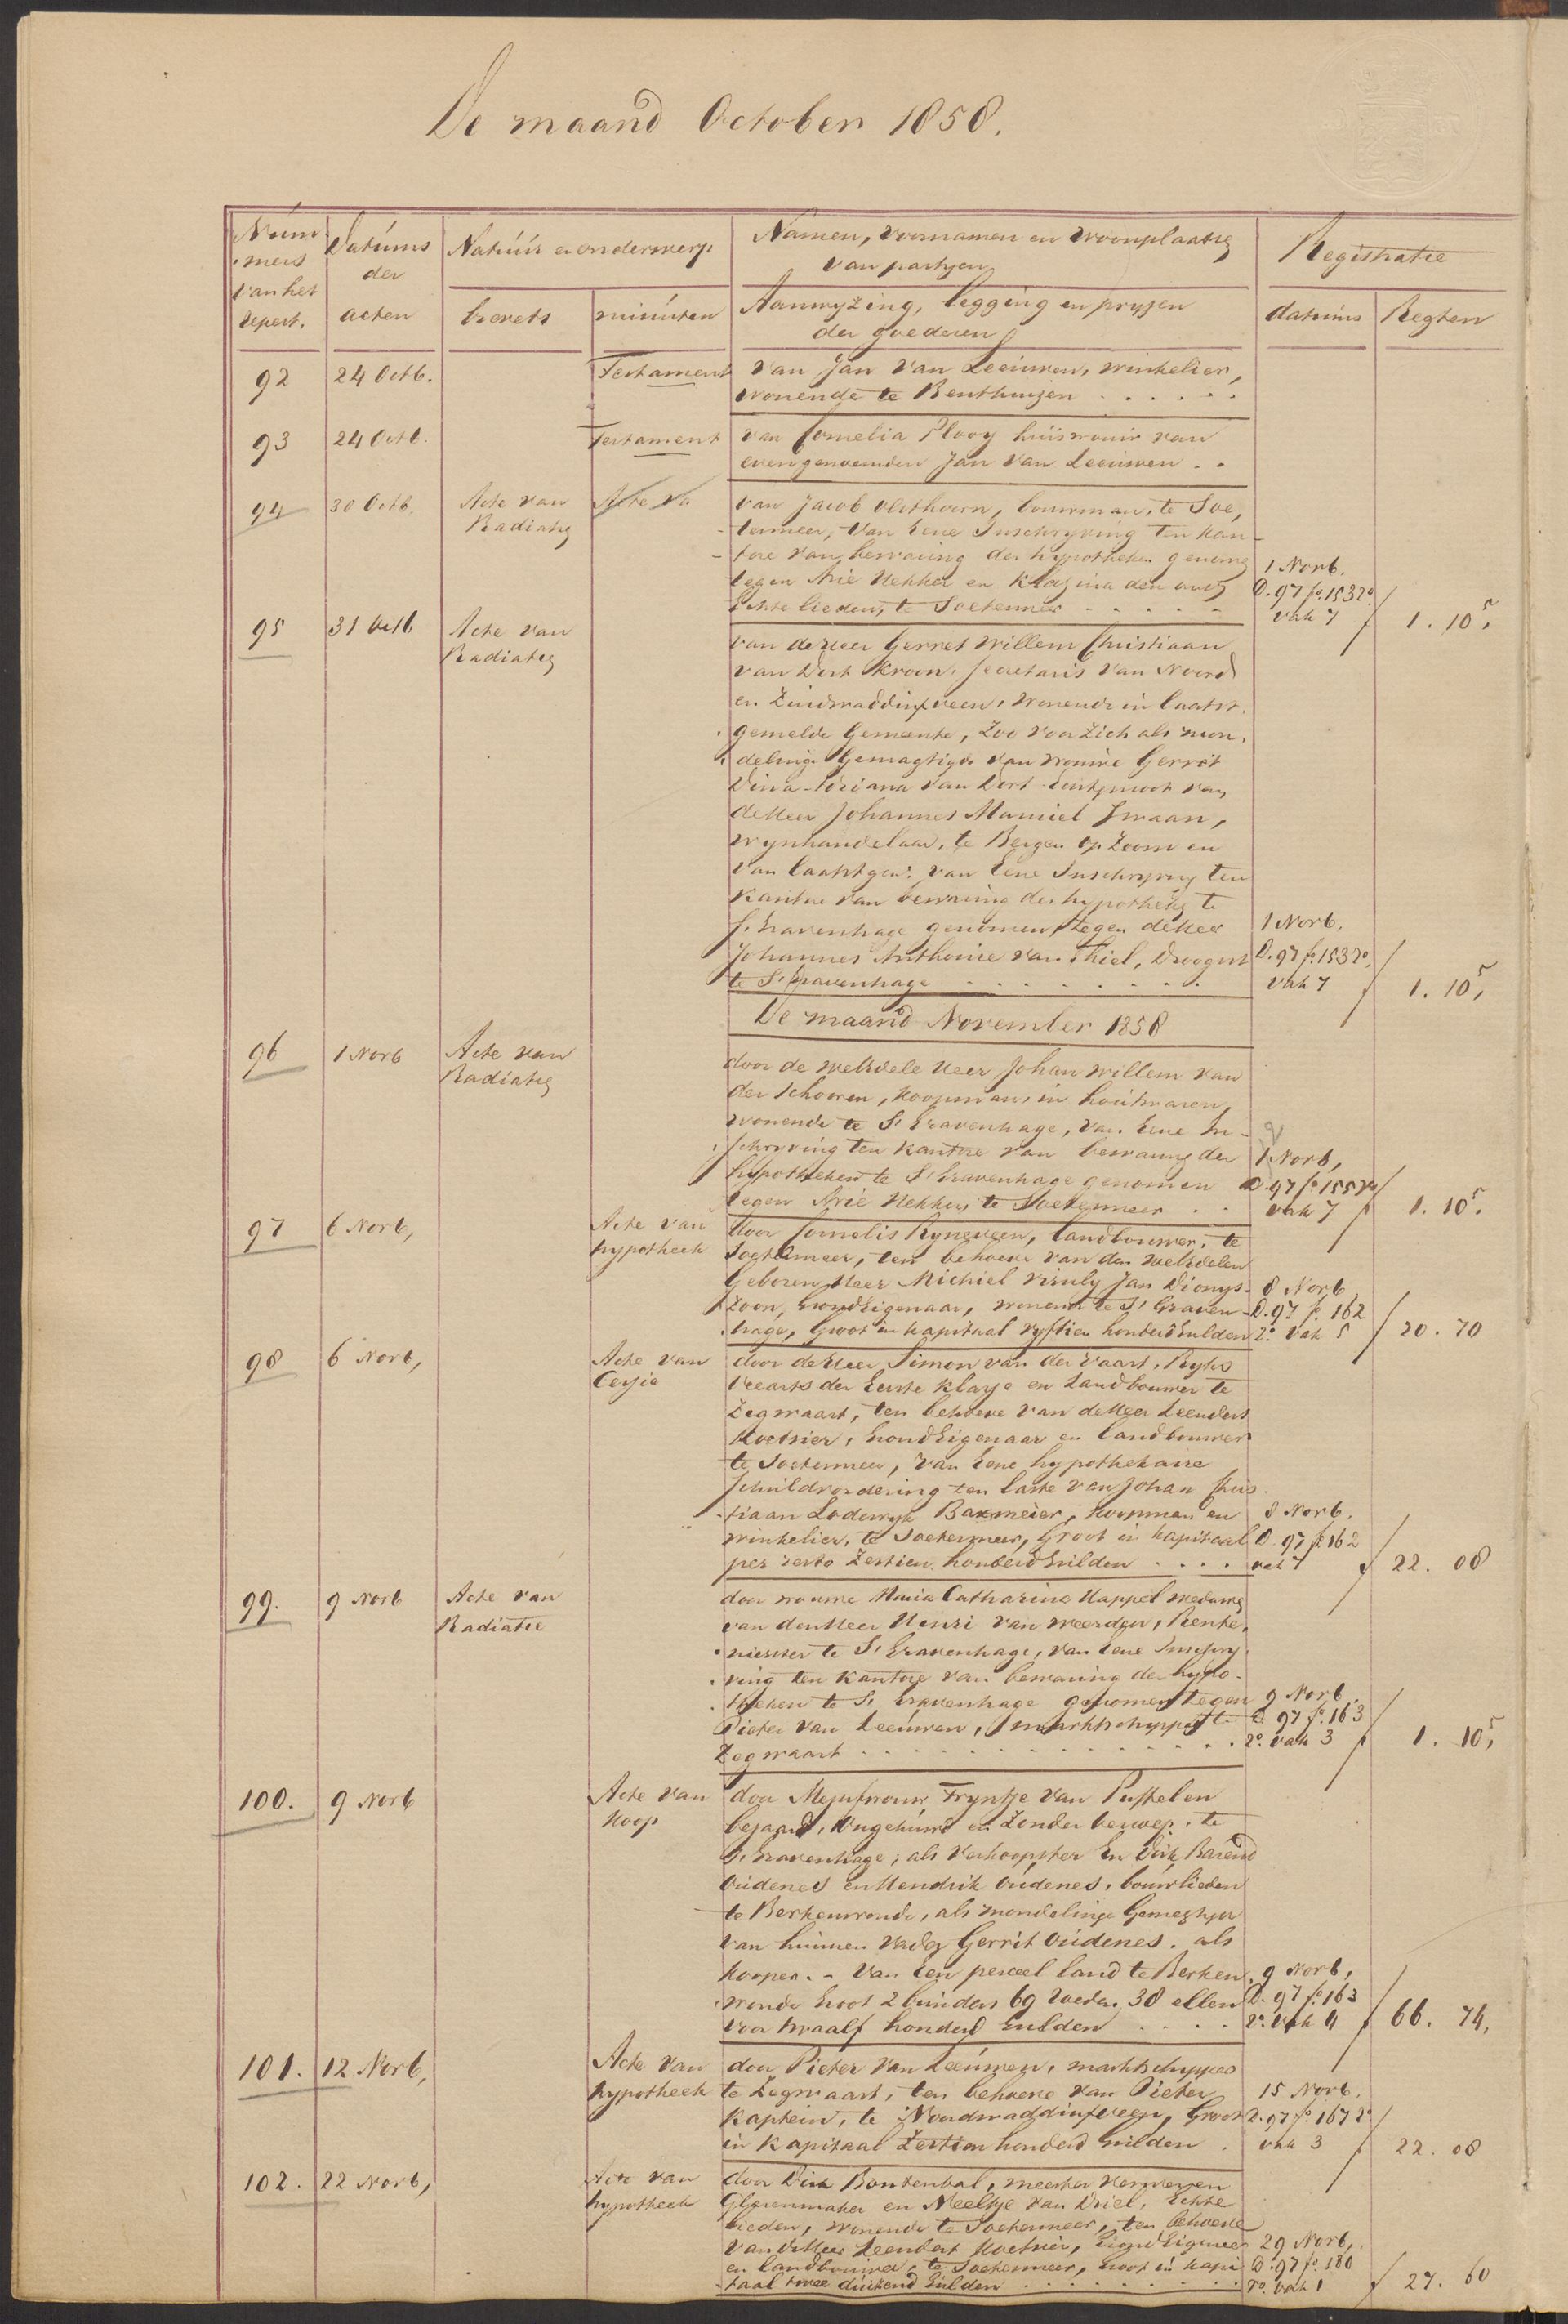 De maand October 1858.
Num
mers
van het
Repert.
Datums
der
acten
Natuur en onderwerp
brevets
minuten
Namen, Voornamen en Woonplaatsen
van partyen
Aanwyzing, legging en pryzen
der goederen
Registratie
datums
Regten
92
24 Octb.
Testament
van Jan van Leeuwen, winkelier,
wonende te Benthuizen . . . . . .
93
24 Octb.
Testament
van Cornelia Plooy huisvrouw van
evengenoemden Jan van Leeuwen . .
94
30 Octb.
Acte van
Radiatie
Acte va
van Jacob Olsthoorn, bouwman, te Soe,
termeer, van eene Inschryving ten kan-
tore van bewaring der hypotheken genomen
tegen Arie Hekker en Klazina den
Echtelieden, te Soetermeer - - - - -
1 Novb.
D. 97 fo. 153 ro.
vak 7
f 1. 10 5,
95
31 Octb
Acte van
Radiatie
van de Heer Gerret Willem Christiaan
van Dort Kroon, Secretaris van Noord
en Zuidwaddinxveen, wonende in laatst.
gemelde Gemeente, Zoo voor Zich als mon,
delinge Gemagtigde van vrouwe Gerrit
Dina Adriana van Dort echtgenoot van
de Heer Johannes Manuel Zwaan,
wynhandelaar, te Bergen op Zoom en
van laatstgen: van eene Inschryving ten
kantore van bewaring der hypotheken te
S. Gravenhage genomen tegen de Heer
Johannes Anthonie van Thiel, Droogist
te S' Gravenhage - - - - - - - -
1 Novb.
D. 97 fo. 153 ro.
vak 7
f 1. 10 5,
De maand November 1858
96
1 Novb
Acte van
Radiatie
door de weledele Heer Johan Willem van
der Schooren, Koopman, in houtwaren,
wonende te S' Gravenhage, van eene In-
schryving ten kantore van bewaring der
hypotheken te S' Gravenhage genomen
tegen Arie Hekker, te Soetermeer . .
1 Novb,
D. 97 fo. 155 ro
vak 7
f 1. 10 5.
97
6 Novb,
Acte van
hypotheek
door Cornelis Ryneveen, landbouwer, te
Soetermeer, ten behoeve van den weledelen
Geboren Heer Michiel Visuly Jan Dionys-
Zoon, Grondeigenaar, wonende te S' Graven-
hage, Groot in kapitaal vyftien honderd Gulden
8 Novb
D. 97 fo. 162
ro. vak 5
f 20. 70
98
6 Novb,
Acte van
Cessie
door de Heer Simon van der Vaart, Ryks
Veearts der Eerste Klasse en Landbouwer te
Zegwaart, ten behoeve van de Heer Leendert
Koetsier, Grondeigenaar en landbouwer
te Soetermeer, van eene hypothekaire
Schuldvordering ten laste van Johan Chris.
tiaan Lodewyk Baxmeier, Koopman en
winkelier, te Soetermeer, Groot in kapitaal
per resto Zestien honderd Gulden . . . .
8 Novb.
D. 97 fo. 162
vak 7
f 22. 08
99.
9 Novb
Acte van
Radiatie
door vrouwe Maria Catharina Happel weduwe
van den Heer Henri van Weerden, Rente,
nierster te S' Gravenhage, van eene Inschry.
ving ten kantore van bewaring der hypo-
theken te S' Gravenhage genomen tegen
Pieter van Leeuwen, marktschipper te
Zegwaart . . . . . . . . . . . .
9 Novb.
D. 97 fo. 163
ro. vak 3
f 1. 10 5,
100.
9 Novb
Acte van
Koop
door Mejufvrouw Tryntje van Puffelen
bejaard, ongehuwd en Zonder beroep, te
S. Gravenhage; als Verkoopster En Dirk Barend
Oudenes en Hendrik Oudenes, bouwlieden
te Berkenwoude, als mondelinge Gemagtigden
van hunnen Vader Gerrit Oudenes, als
Kooper. - van een perceel land te Berken,
woude Groot 2 bunders 69 roeden 38 ellen
voor twaalf honderd Gulden . . . .
9 Novb,
D. 97 fo. 163
ro. vak 4
f 66. 74,
101.
12 Novb,
Acte van
hypotheek
door Pieter van Leeuwen, marktschipper
te Zegwaart, ten behoeve van Pieter
Kaptein, te Noordwaddinxveen, Groot
in Kapitaal Zestien honderd Gulden .
15 Novb.
D. 97 fo. 167 ro
vak 3
f 22. 08
102.
22 Novb,
Acte van
hypotheek
door Dirk Bontenbal, meester Verwer en
Glazenmaker en Neeltje van Driel, Echte
lieden, wonende te Soetermeer, ten behoeve
van de Heer Leendert Koetsier, Grondeigenaar
en landbouwer, te Soetermeer, Groot in kapi
taal twee duizend Gulden . . . . . . . .
29 Novb,
D. 97 fo. 180
ro. vak 1
f 27. 60